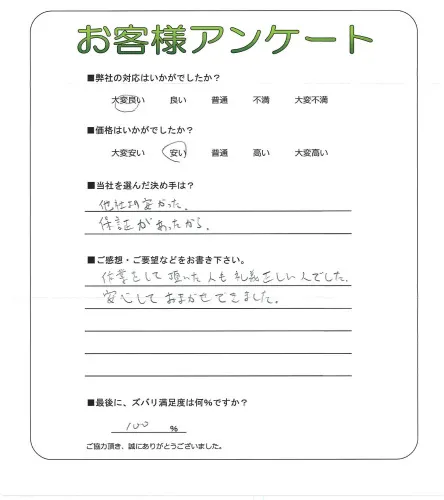 お客様アンケート
■弊社の対応はいかがでしたか?
大変良い 良い 普通 不満 大変不満
■価格はいかがでしたか?
大変安い 安い 普通 高い 大変高い
■当社を選んだ決め手は?
他社より安かった。
保証があったから。
■ご感想・ご要望などをお書き下さい。
作業をして頂いた人も礼義正しい人でした。
安心しておまかせできました。
■最後に、ズバリ満足度は何%ですか?
100 %
ご協力頂き、誠にありがとうございました。